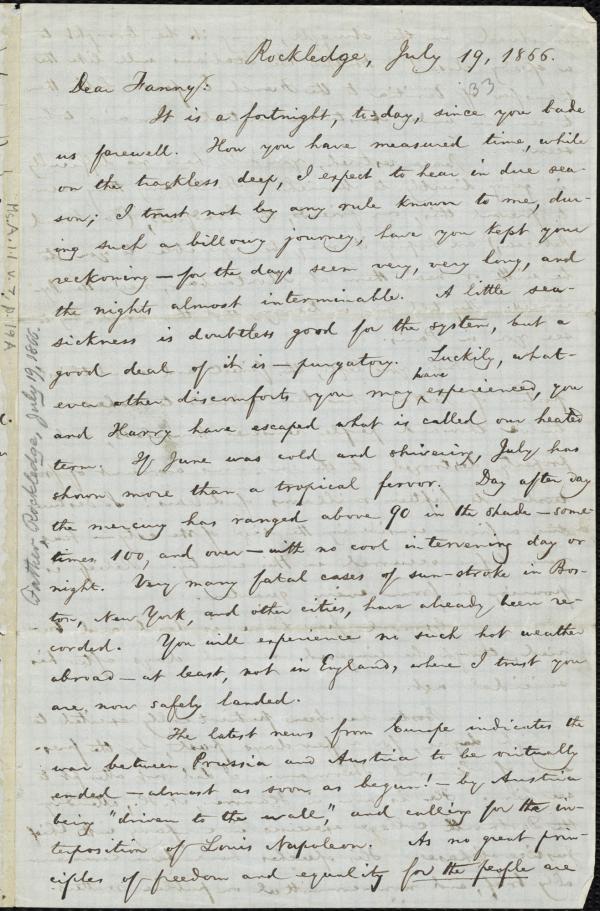 Rockledge, July 19, 1866.
33
Dear Fanny:
It is a fortnight, to-day, since you bade
us farewell. How you have measured time, while
on the trackless deep, I expect to hear in due sea-
son; I trust not by any rule known to me, dur-
ing such a billowy journey, have you kept your
reckoning — for the days seem very, very long, and
the nights almost interminable. A little sea-
sickness is doubtless good for the system, but a
good deal of it is — purgatory. Luckily, what-
ever other discomforts you may have experienced, you
and Harry have escaped what is called our heated
term. If June was cold and shivering, July has
shown more than a tropical fervor. Day after day
the mercury has ranged above 90 in the shade — some-
times 100, and over — with no cool intervening day or
night. Very many fatal cases of sun-stroke in Bos-
ton, New York, and other cities, have already been re-
corded. You will experience no such hot weather
abroad — at least, not in England, where I trust you
are now safely landed.
The latest news from Europe indicates the
war between Prussia and Austria to be virtually
ended — almost as soon as begun! — by Austria
being "driven to the wall," and calling for the in-
terposition of Louis Napoleon. As no great prin-
ciples of freedom and equality for the people are
Ms. A. 1.1 v. 7, p. 19A
Rockledge, July 19, 1866.